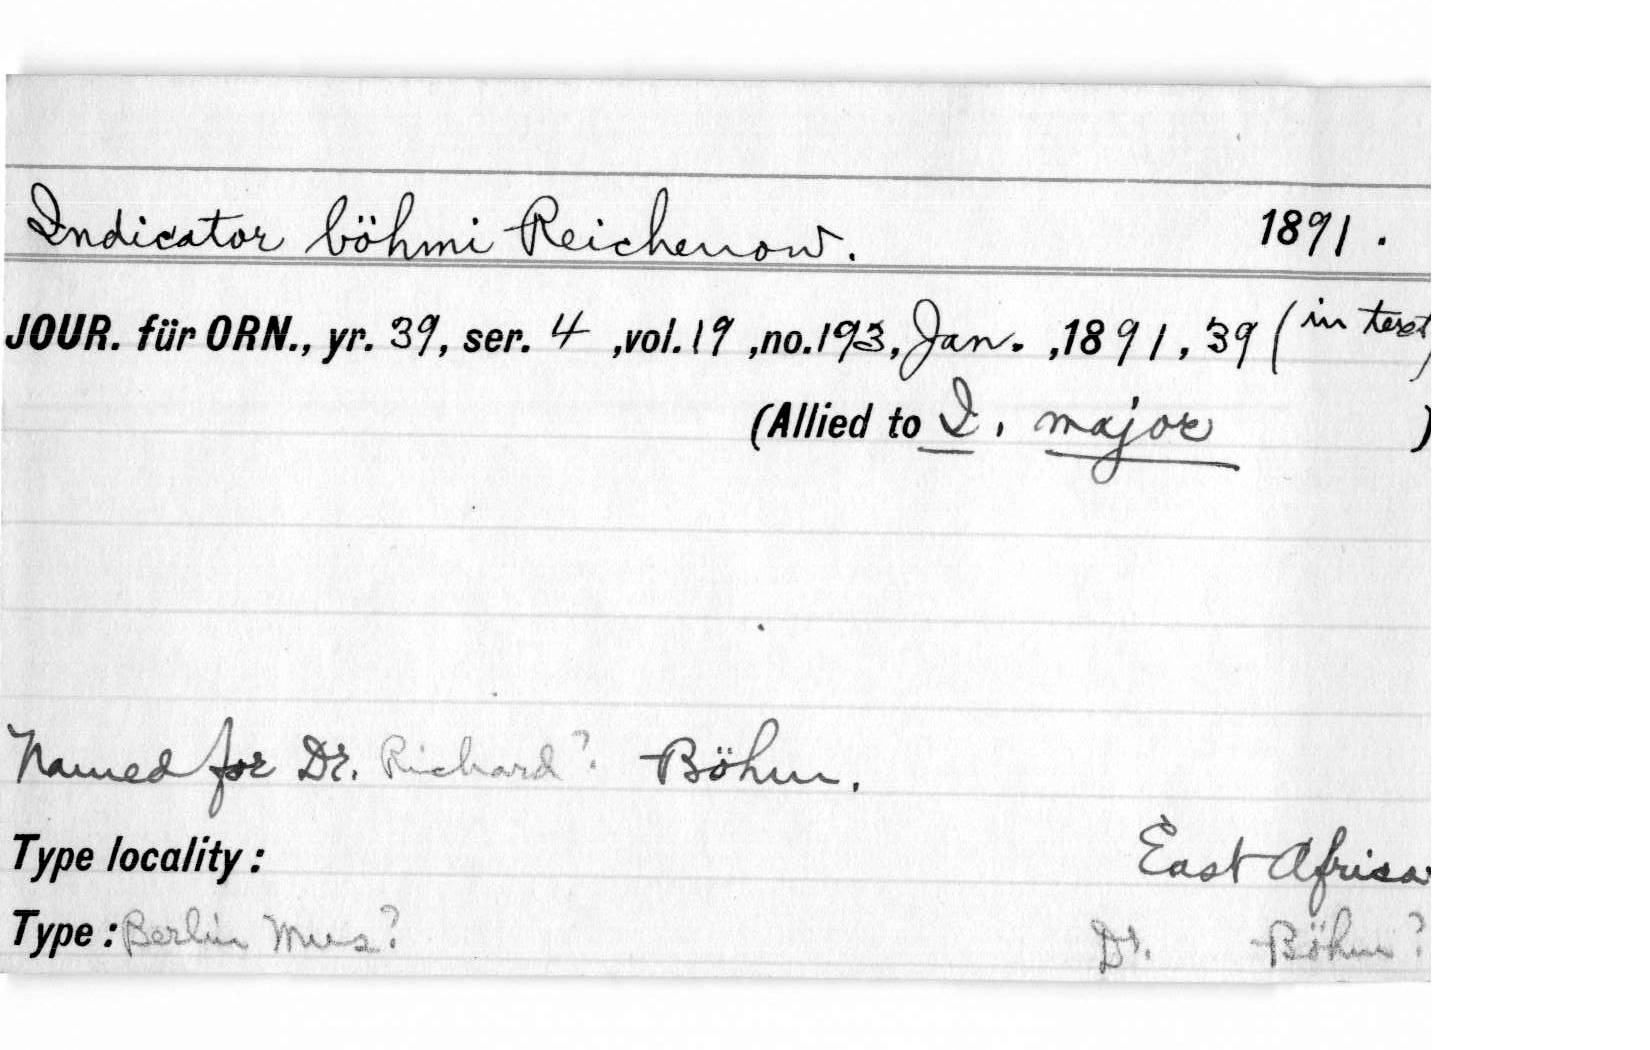 Indicator böhmi Reichenow. 1891.
JOUR. für ORN., yr. 39, ser. 4 ,vol. 19 ,no. 193, Jan. ,1891, 39 (in text)
(Allied to I. major )
Named for Dr. Richard? Böhm.
Type locality: East Africa
Type: Berlin Mus? Dr. Böhm?